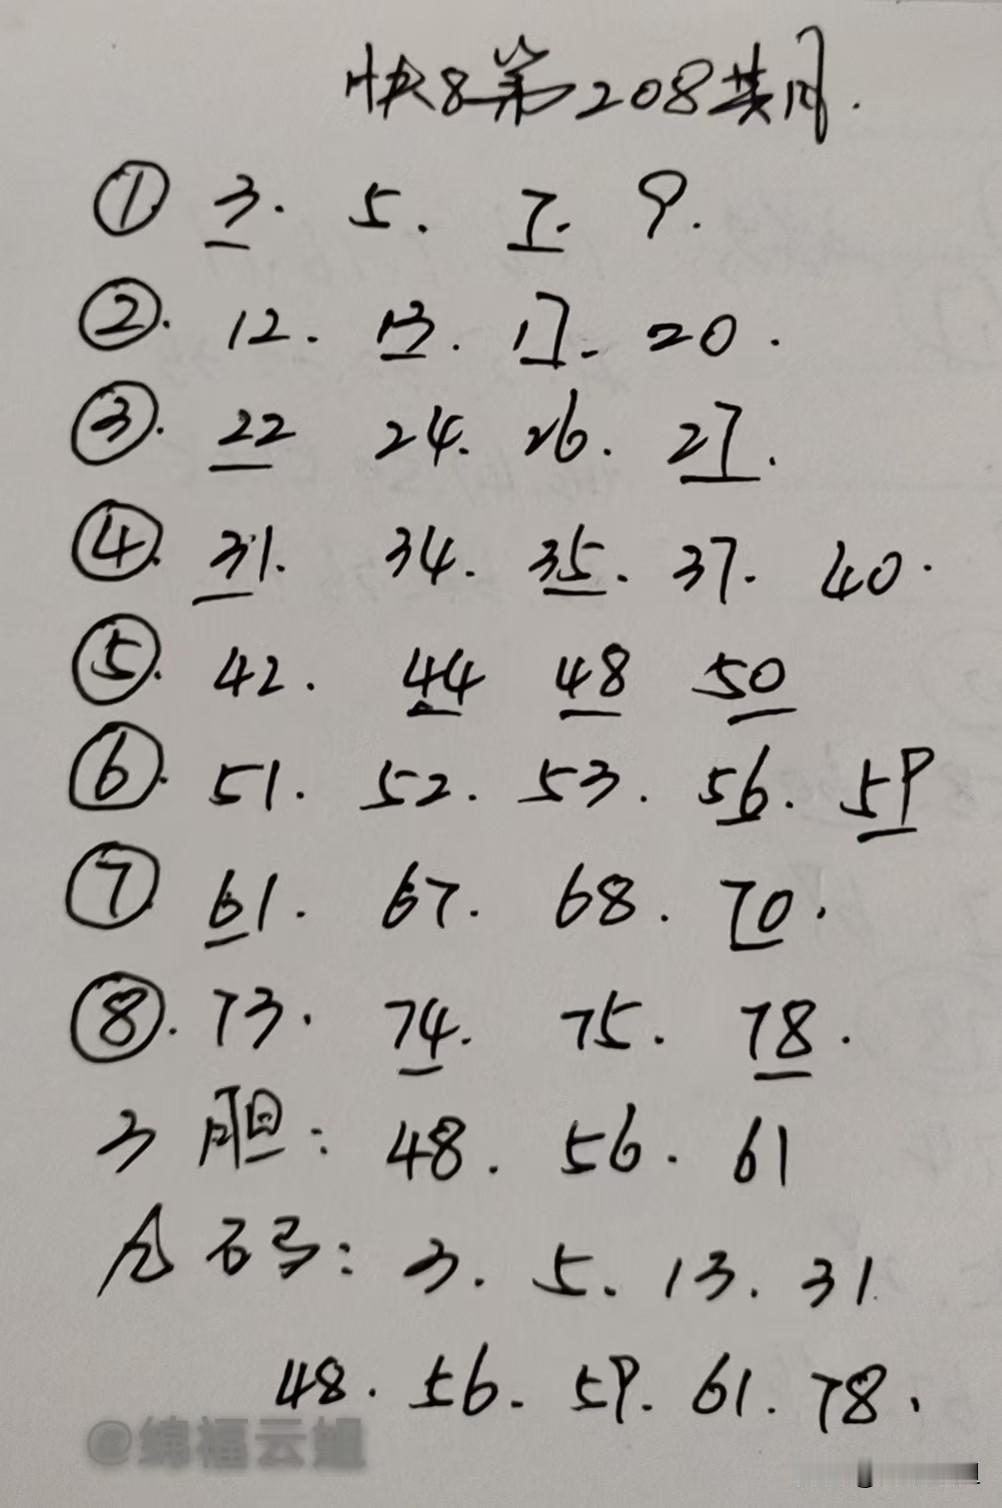 快8第208期
① 3. 5. 7. 9.
②. 12. 13. 17. 20.
③. 22 24. 26. 27.
④. 31. 34. 35. 37. 40.
⑤. 42. 44 48 50
⑥. 51. 52. 53. 56. 59
⑦ 61. 67. 68. 70.
⑧. 73. 74. 75. 78.
3胆: 48. 56. 61
码: 3. 5. 13. 31.
48. 56. 59. 61. 78.
@绵福云姐